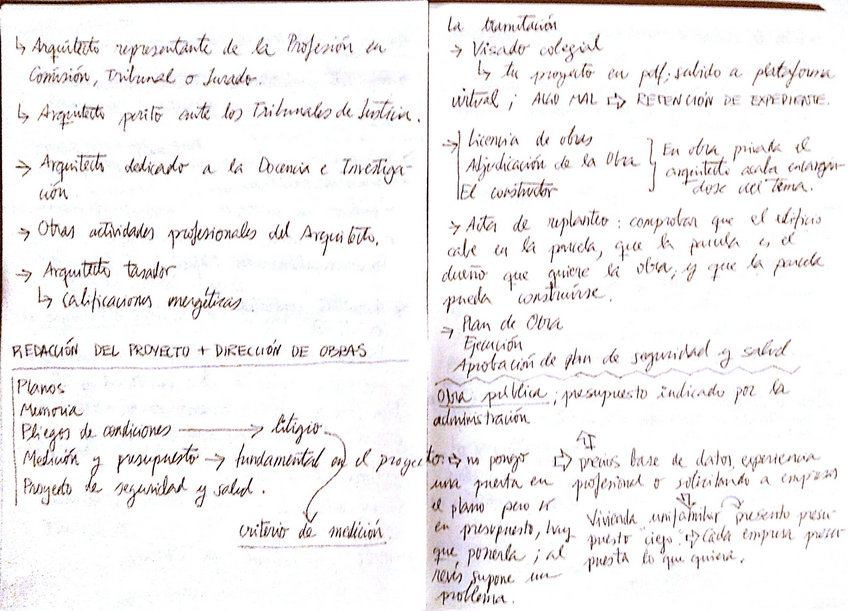 ↳ Arquitecto representante de la Profesión en
Comisión, Tribunal o Jurado.
↳ Arquitecto perito ante los Tribunales de Justicia.
→ Arquitecto dedicado a la Docencia e Investiga-
ción
→ Otras actividades profesionales del Arquitecto,
→ Arquitecto tasador
↳ Calificaciones energéticas
REDACCIÓN DEL PROYECTO + DIRECCIÓN DE OBRAS
Planos
Memoria
Pliegos de condiciones → litigio
Medición y presupuesto → fundamental en el proyecto:
Proyecto de seguridad y salud.
criterio de medición.
La tramitación
→ Visado colegial
↳ tu proyecto en pdf; subido a plataforma
virtual; ALGO MAL ⇨ RETENCIÓN DE EXPEDIENTE.
→ Licencia de obras
Adjudicación de la Obra
El constructor
En obra privada el
arquitecto acaba encargán-
dose del tema.
→ Acta de replanteo: comprobar que el edificio
cabe en la parcela, que la parcela es el
dueño que quiere la obra, y que la parcela
pueda construirse.
→ Plan de Obra
Ejecución
Aprobación de plan de seguridad y salud
Obra pública; presupuesto indicado por la
administración
⇨ no pongo
una puerta en
el plano pero sí
en presupuesto, hay
que ponerla; al
revés supone un
problema.
⇨ precios base de datos, experiencia
profesional o solicitando a empresas
Vivienda unifamiliar presento presu-
puesto ciego ⇨ Cada empresa presu-
puesta lo que quiera.